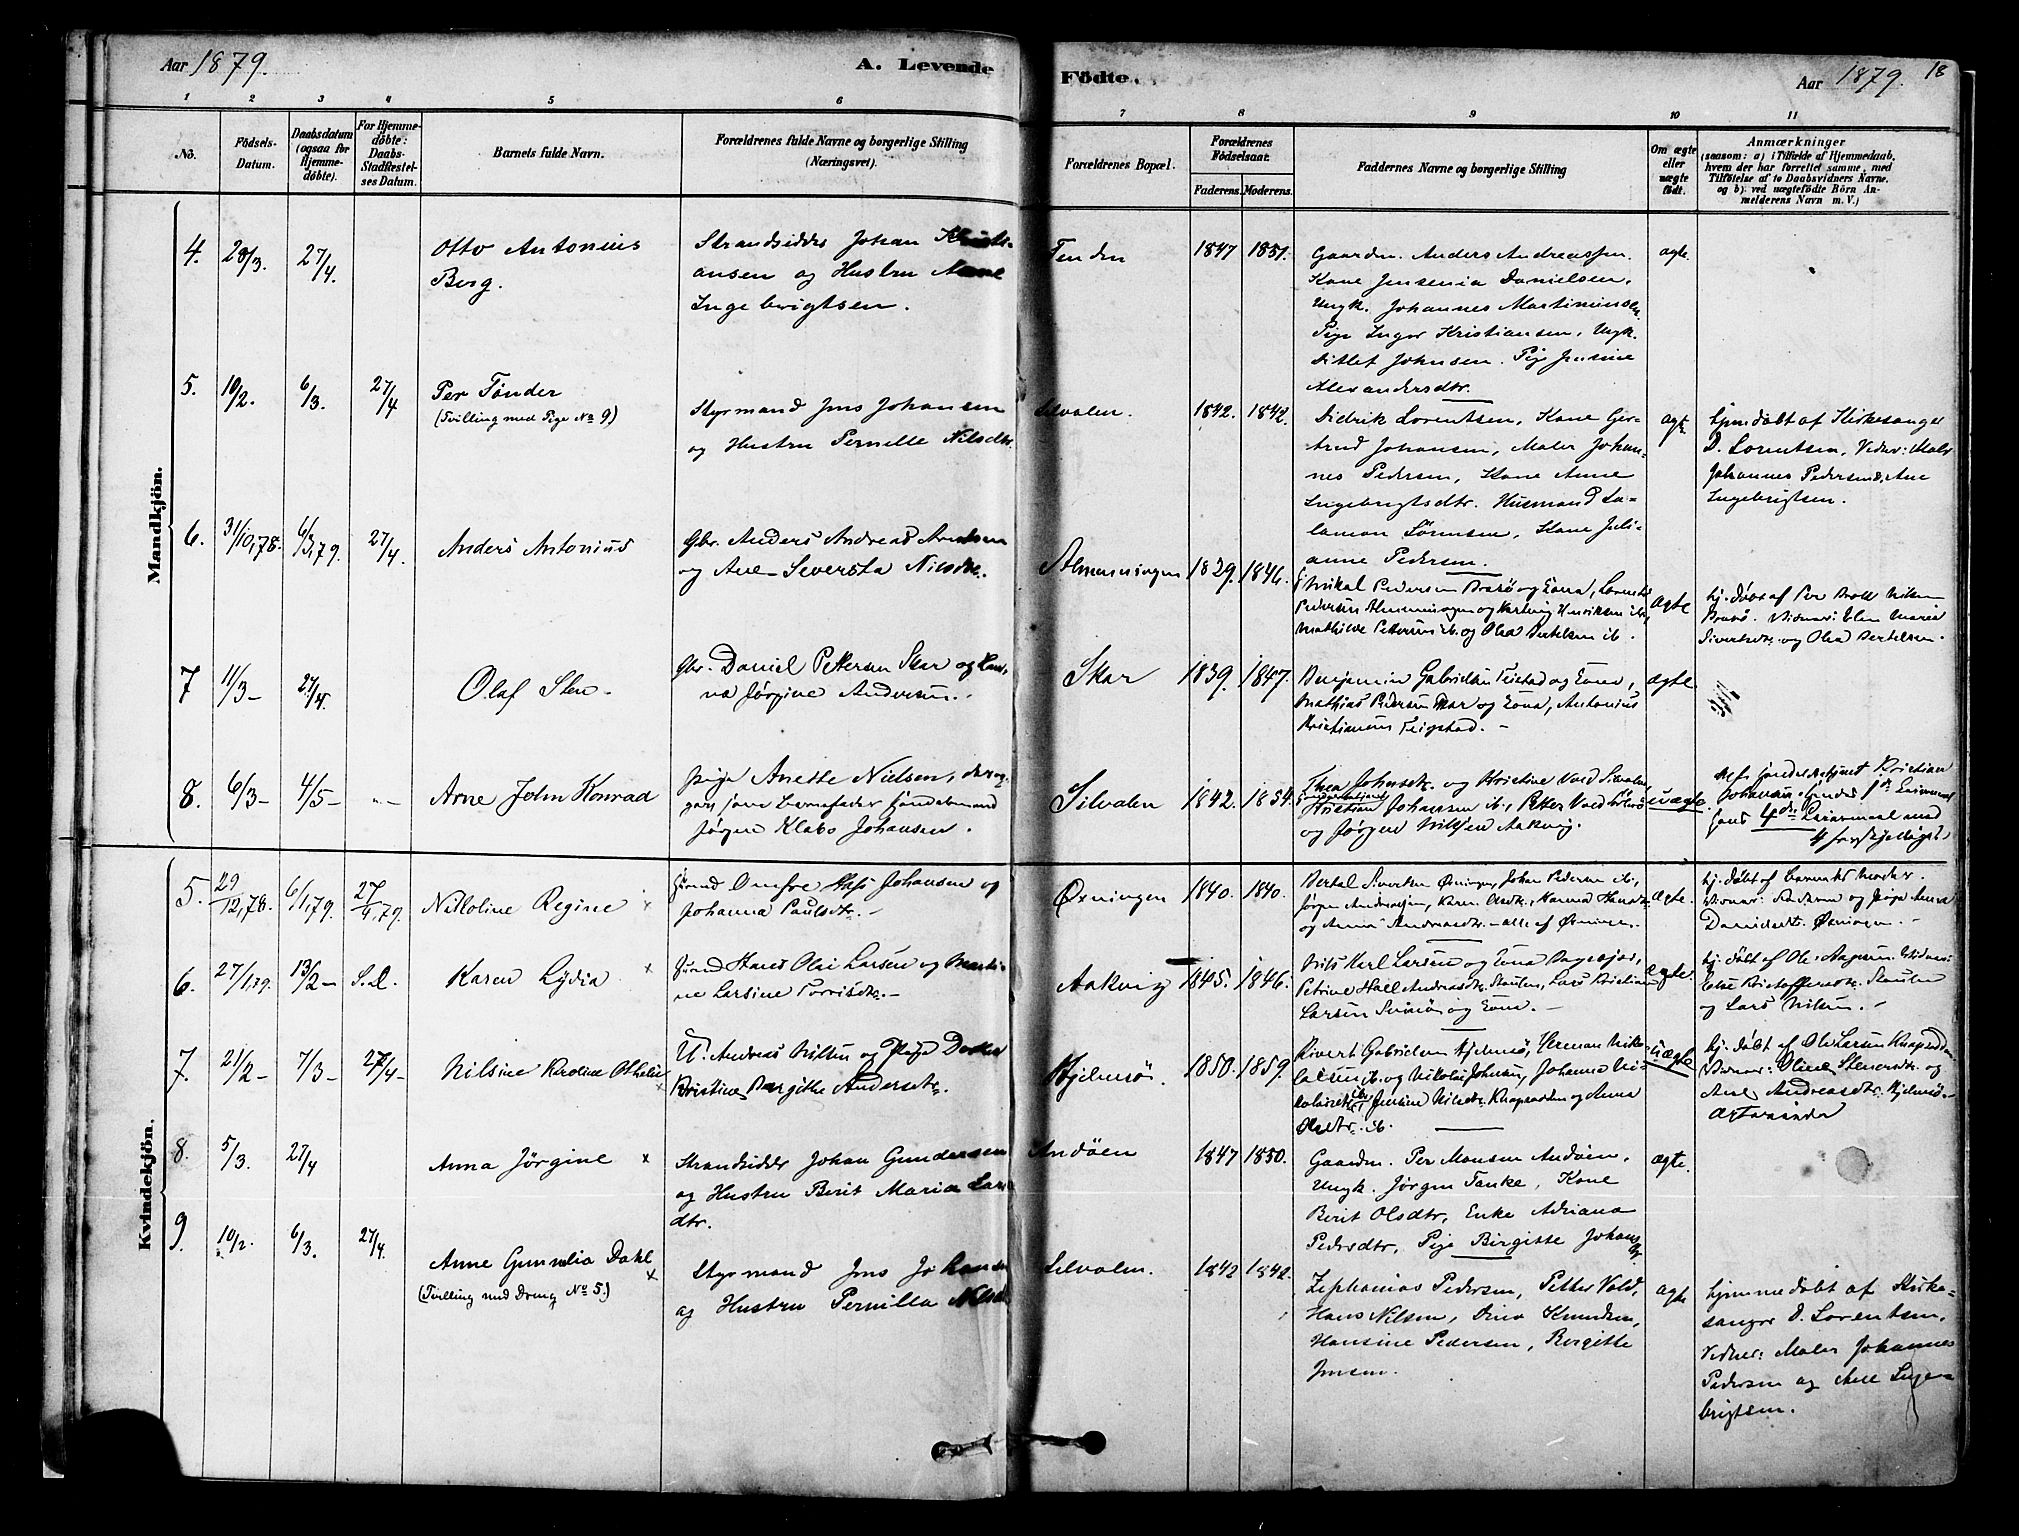 Aar 1879.
A. Levende
Födte.
Aar 1879. 18
1 2 3 4 5 6 7 8 9 10 11
No.
Födsels-
Datum.
Daabsdatum
(ogsaa for
Hjemme-
döbte).
For Hjemme-
döbte:
Daabs-
Stadfæstel-
ses Datum.
Barnets fulde Navn.
Forældrenes fulde Navne og borgerlige Stilling
(Næringsvei).
Forældrenes Bopæl.
Forældrenes
Födselsaar.
Faderens. Moderens.
Faddernes Navne og borgerlige Stilling
Om ægte
eller
uægte
födt.
Anmærkninger
(saasom: a) i Tilfælde af Hjemmedaab,
hvem der har forrettet samme, med
Tilföielse af to Daabsvidners Navne,
og b) ved uægtefödte Börn An-
melderens Navn m. V.)
Mandkjön.
4. 28/3. 27/4.
Otto Antonius
Berg.
Strandsidder Johan Kristi-
ansen og Hustru Anne
Ingebrigtsen.
Tenden
1847 1851.
Gaardm. Anders Andreassen.
Kone Jensenia Danielsen,
Ungk. Johannes Martinussen.
Pige Inger Kristiansen, Ungk.
Ditlef Johnsen. Pige Jensine
Alexandersdtr.
ægte.
5. 10/2. 6/3. 27/4
Per Tønder
(Tvilling med Pige No 9)
Styrmand Jens Johansen
og Hustru Pernille Nilsdtr.
Silvalen.
1842. 1842.
Didrik Lorentsen, Kone Ger-
trud Johansen, Maler Johan-
nes Pedersen, Kone Anne
Ingebrigtsdtr. Husmand Sa-
lamon Sörensen, Kone Juli-
anne Pedersen.
ægte
hjemdøbt af Kirkesanger
D. Lorentsen, Vidner: Maler
Johannes Pedersen & Ane
Ingebrigtsen.
6. 31/10,78. 6/3,79. 27/4.
Anders Antonius
Gbr. Anders Andreas
og Ane Siversta Nilsdtr.
Almenningen
1839. 1846.
Mikal Pedersen Brasø og Kona,
Pedersen Almenningen og Henriksen ib,
Mathilde Pettersen ib. og Olea Bertelsen ib.
ægte
hj. døbt af Per
Brasø. Vidner: Elen Maria
Sivertsdtr. og Olea Bertelsen.
7 11/3- 27/4.
Olaf Sten-
Gbr. Daniel Pettersen Skar og
Jørgine Andersen.-
Skar
1839. 1847.
Benjamin Gabrielsen Feistad og Kona,
Mathias Pedersen Skar og Kona, Antonius
Kristiansen Feigstad.-
ægte.
8. 6/3- 4/5- -"-
Arne John Konrad
pige Anette Nielsen,
Barnefader Handelsmand
Jørgen Klabo Johansen.
Silvalen
1842. 1854.
Thea Johnsdtr. og Kristine Vold Silvalen
Kristian Johansen ib. Petter Vold
og Jørgen Nilsen Aakvig.
uægte.
Kristian
Johansen
4de Leiermaal med
4 forskjellige.
Kvindekjön.
5. 29/12,78. 6/1,79. 27/4,79.
Nikoline Regine x
Onfre Hass Johansen og
Johanna Paulsdtr.-
Øxningen
1840. 1840.
Bertal Sivertsen Øxningen, Johan Pedersen ib,
Jørgen Andreassen, Karen Olsdtr., Hanna
og Anna Andreasdtr.-alle af Øxningen.
ægte.
hj. døbt af barnets moder.
Vidner: Faderen og pige Anna
Danielsdtr. Øxningen.-
6. 27/1,79. 13/2- S.D.
Karen Lydia x
Hans Olai Larsen og Marti-
ne Larsine Torrisdtr.-
Aakvig
1845. 1846.
Nils Karl Larsen og Kona
Petrine Hall Andreasdtr. Staulen, Lars Kristian
Larsen og Kona.-
ægte.
hj. døbt af Ole Aagesen. Vidner:
Else Kristoffersdtr. Staulen
og Lars Nilsen.-
7. 21/2- 7/3- 27/4-
Nilsine Karoline Othelie x
U. Andreas Nilsen og Pige
Kristine Birgitte Andersdtr.
Hjelmsø.
1850. 1859.
Sivert Gabrielsen Hjelmsø, Herman Niko-
laisen ib. og Nikolai Johnsen, Johanna Ni-
kolaisdtr. ib, Jensine Nilsdtr. og Anna
Olsdtr. ib.
uægte
hj. døbt af Ole Larsen
Vidner: Oline Stenersdtr. og
Ane Andreasdtr. Hjelmsø.-
8. 5/3. 27/4
Anna Jørgine x
Strandsidder Johan Gundersen
og Hustru Berit Maria Lars-
dtr.
Andöen
1847 1850.
Gaardm. Per Monsen Andöen,
Ungk. Jörgen Tanke, Kone
Berit Olsdtr, Enke Adriana
Pedersdtr, Pige Birgitte Johans-
ægte.
9. 10/2. 6/3. 27/4.
Anne Gunnelia Dahl x
(Tvilling med Dreng No 5.)
Styrmand Jens Johansen
og Hustru Pernilla Nilsd
Silvalen.
1842 1842.
Zephanias Pedersen, Petter Vold,
Hans Nilsen, Dina Knudsen,
Hansine Pedersen, Birgitte
Jensen.
ægte
hjemmedøbt af Kirke-
sanger D. Lorentsen.
Vidner: Maler Johannes
Pedersen og Ane Inge-
brigtsen.